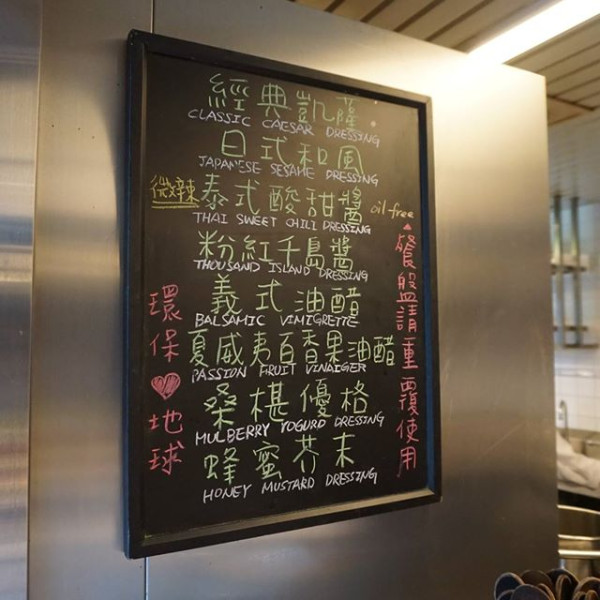 經典凱薩
CLASSIC CAESAR DRESSING
日式和風
JAPANESE SESAME DRESSING
微辣 泰式酸甜醬 oil-free
THAI SWEET CHILI DRESSING
粉紅千島醬
THOUSAND ISLAND DRESSING
義式油醋
BALSAMIC VIMIGRETTE
夏威夷百香果油醋
PASSION FRUIT VINAIGER
桑椹優格
MULBERRY YOGURD DRESSING
蜂蜜芥末
HONEY MUSTARD DRESSING
環保♥地球
▲餐盤請重覆使用